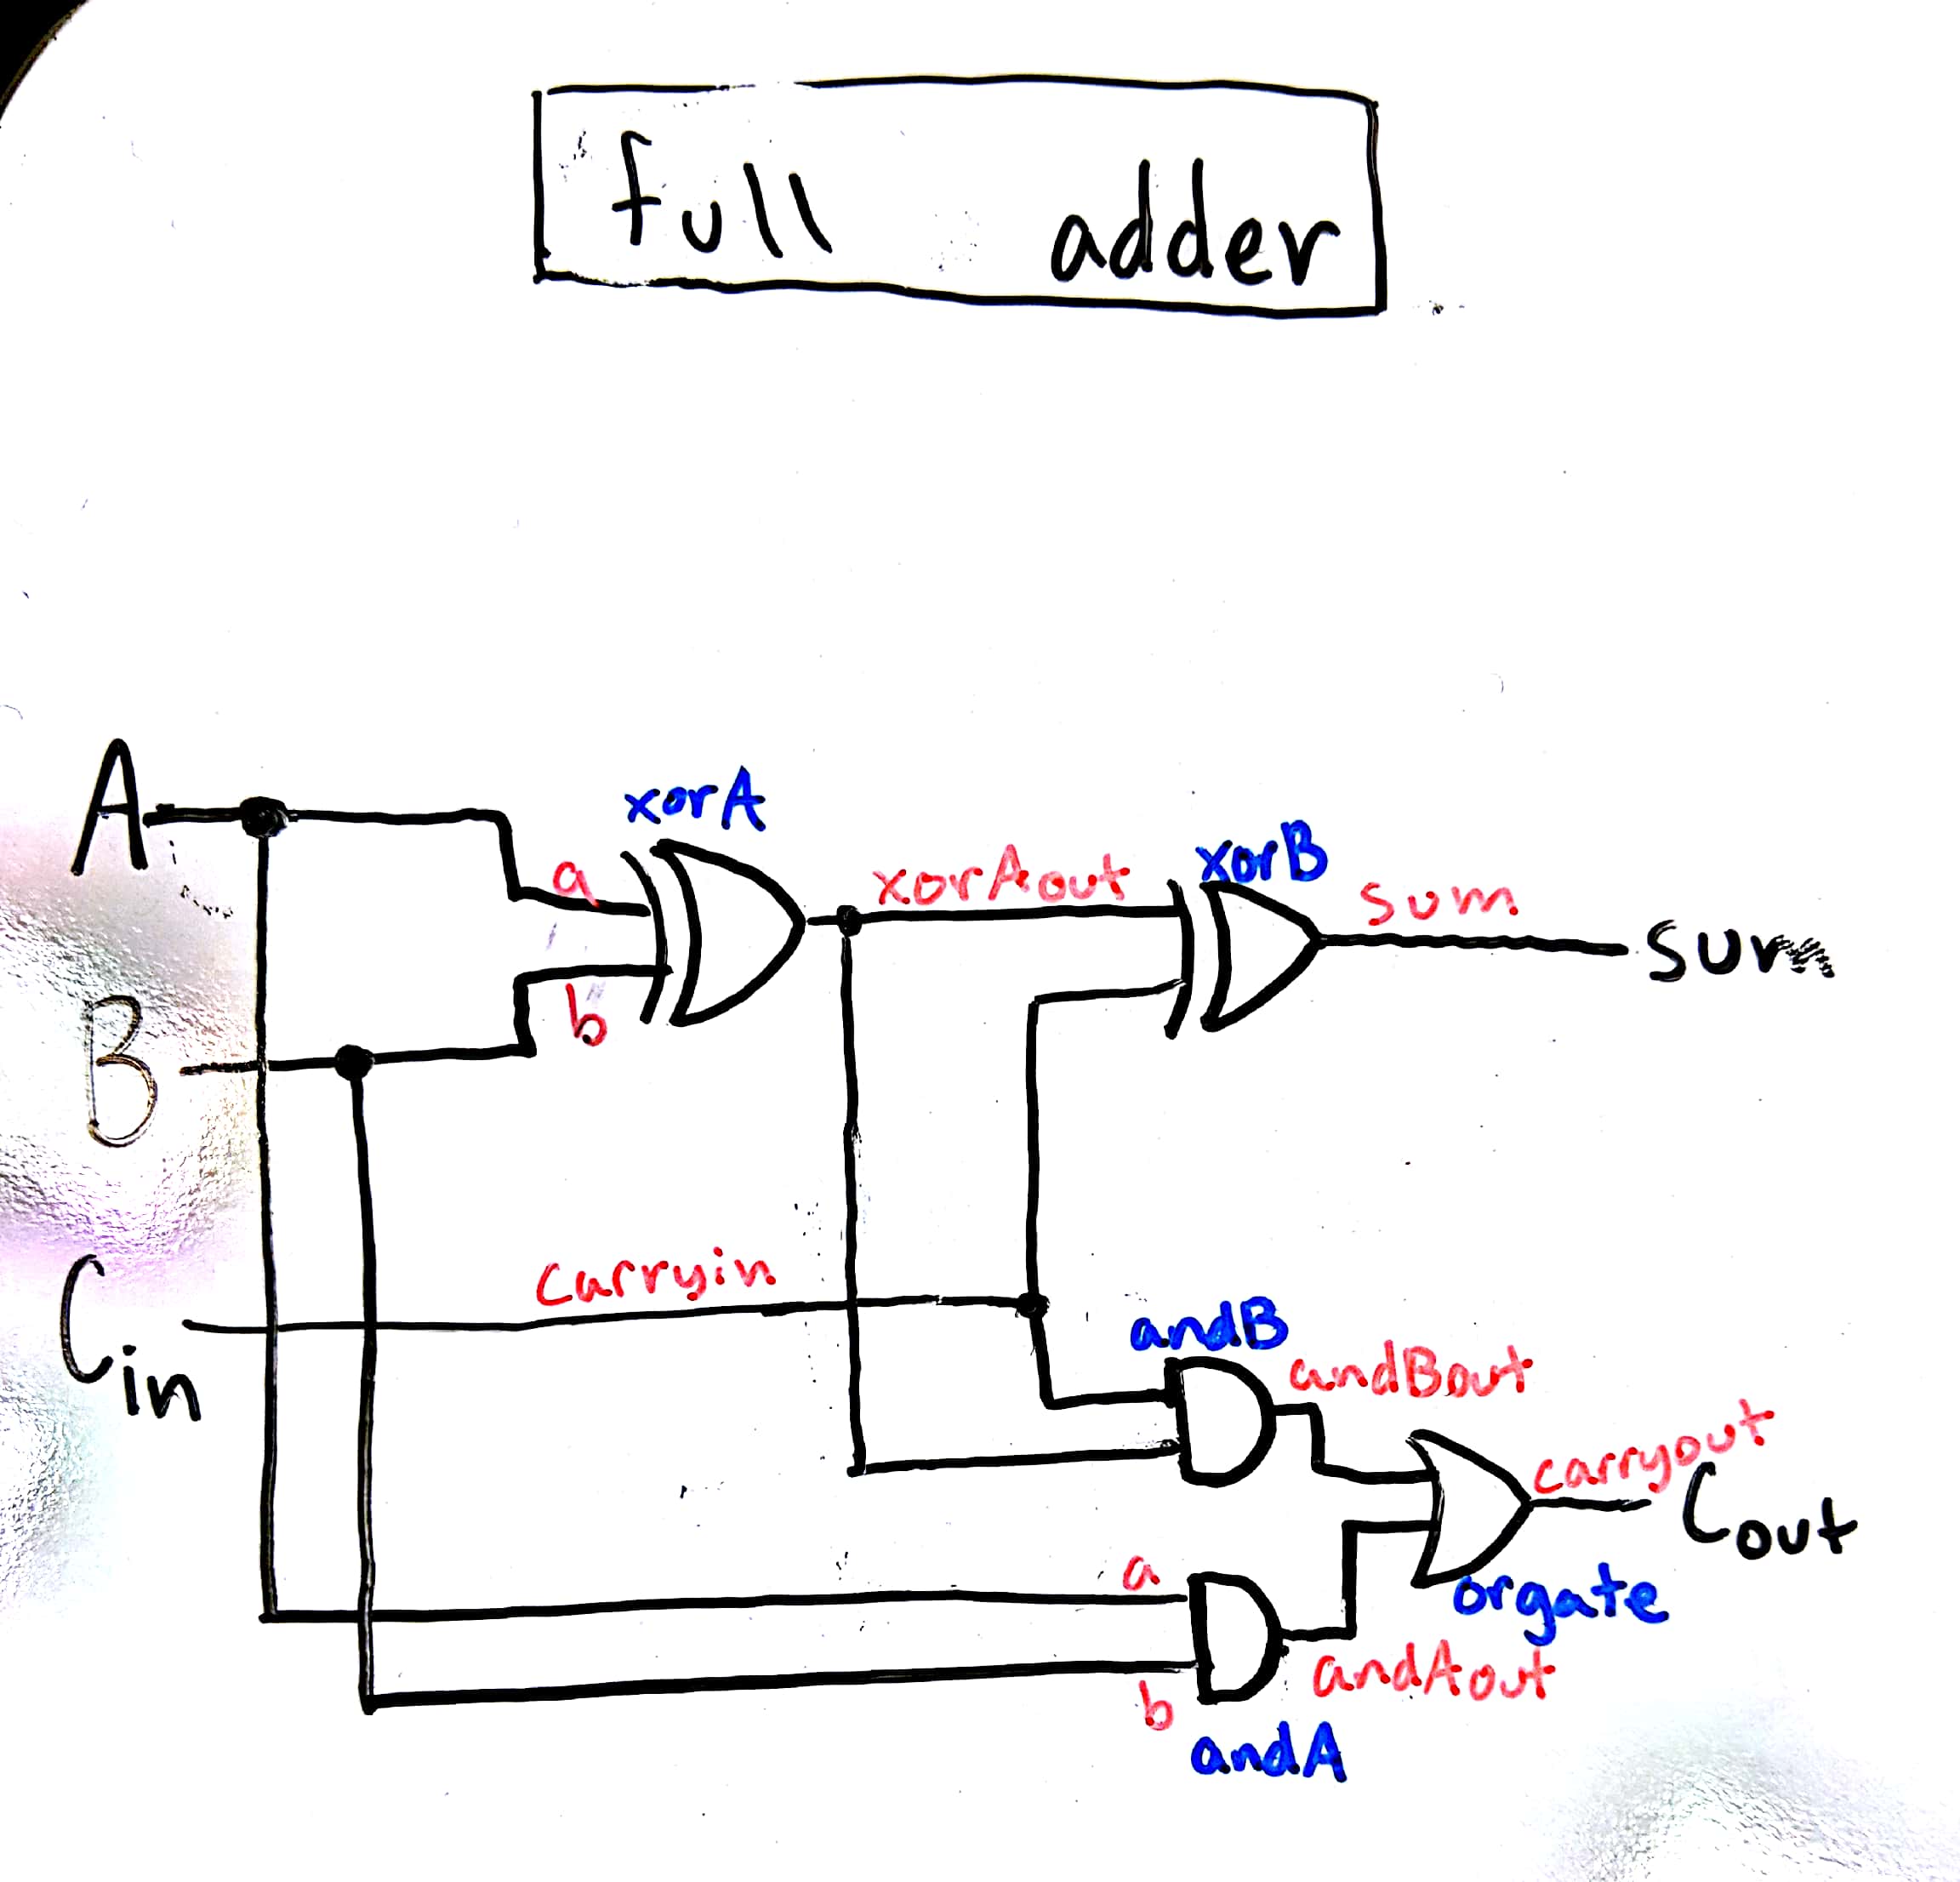 full adder
A
xorA
a
xorAout
xorB
sum
sum
b
B
carryin
Cin
andB
andBout
carryout
Cout
a
orgate
andAout
b
andA